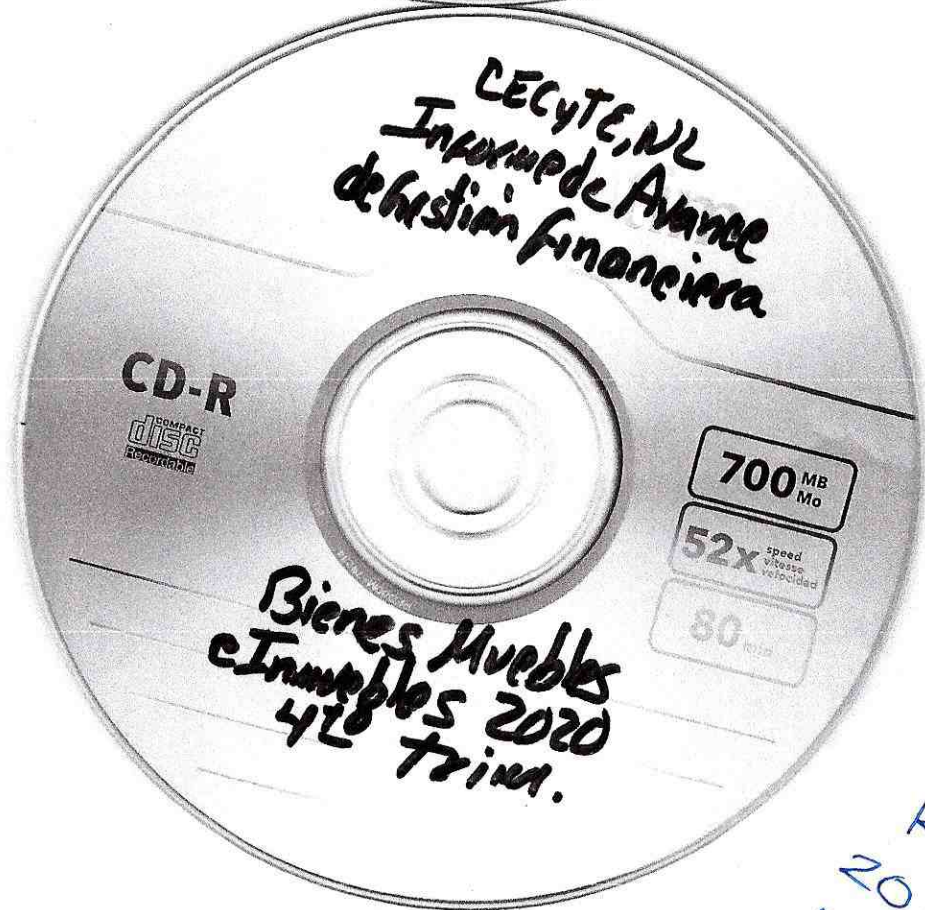 CECyTE, NL
Informe de Avance
de Gestion financiera
CD-R
COMPACT
disc
Recordable
700 MB
Mo
52x speed
vitesse
velocidad
80 min
Bienes Muebles
e Inmuebles 2020
4to Trim.
20